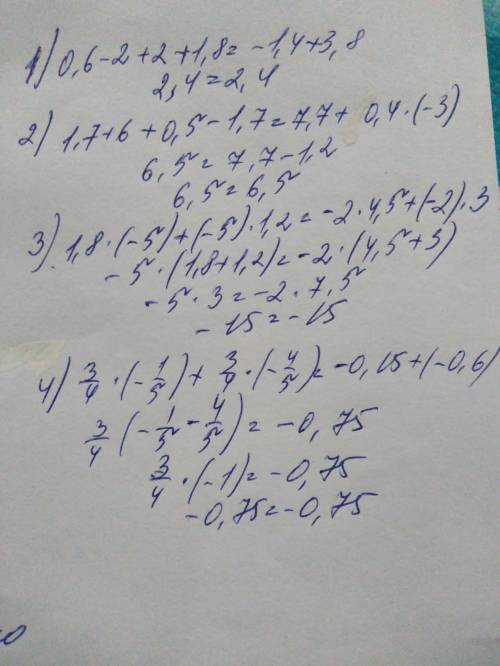 1) 0,6-2+2+1,8=-1,4+3,8
2,4=2,4
2) 1,7+6+0,5-1,7=7,7+ 0,4·(-3)
6,5=7,7-1,2
6,5=6,5
3) 1,8·(-5)+(-5)·1,2=-2·4,5+(-2)·3
-5·(1,8+1,2)=-2·(4,5+3)
-5·3=-2·7,5
-15=-15
4) 3/4·(-1/5)+3/4·(-4/5)=-0,15+(-0,6)
3/4(-1/5-4/5)=-0,75
3/4·(-1)=-0,75
-0,75=-0,75